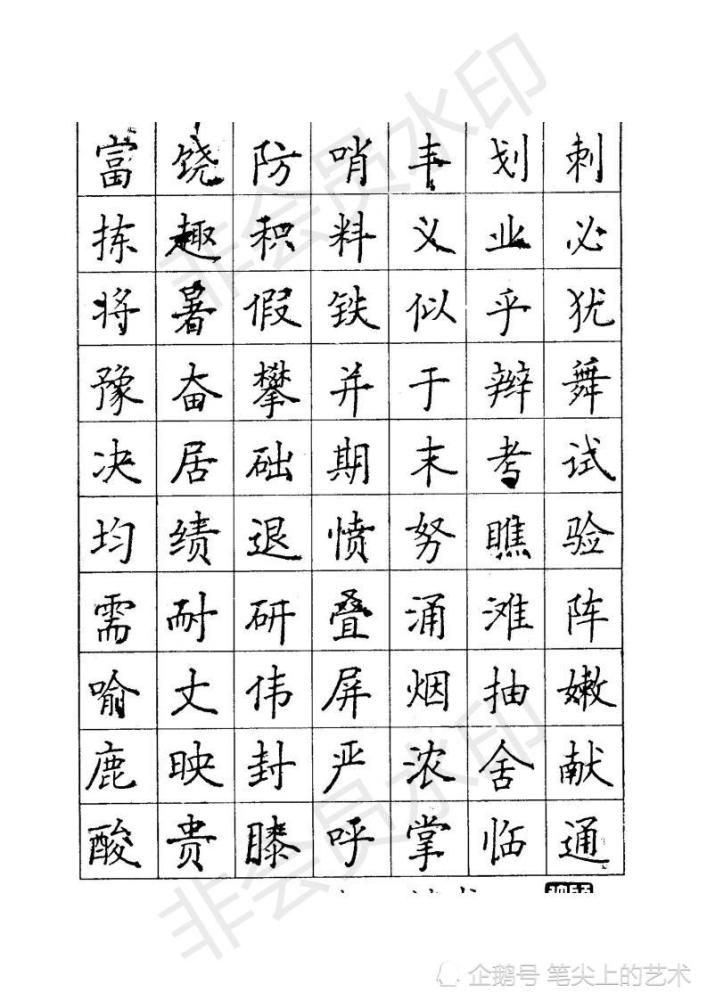 富饶防哨丰划刺
拣趣积料义业必
将暑假铁似乎犹
豫奋攀并于辩舞
决居础期末考试
均绩退愤努瞧验
需耐研叠涌滩阵
喻丈伟屏烟抽嫩
鹿映封严浓舍献
酸贵膝呼掌临通
非会员水印
非会员水印
企鹅号 笔尖上的艺术